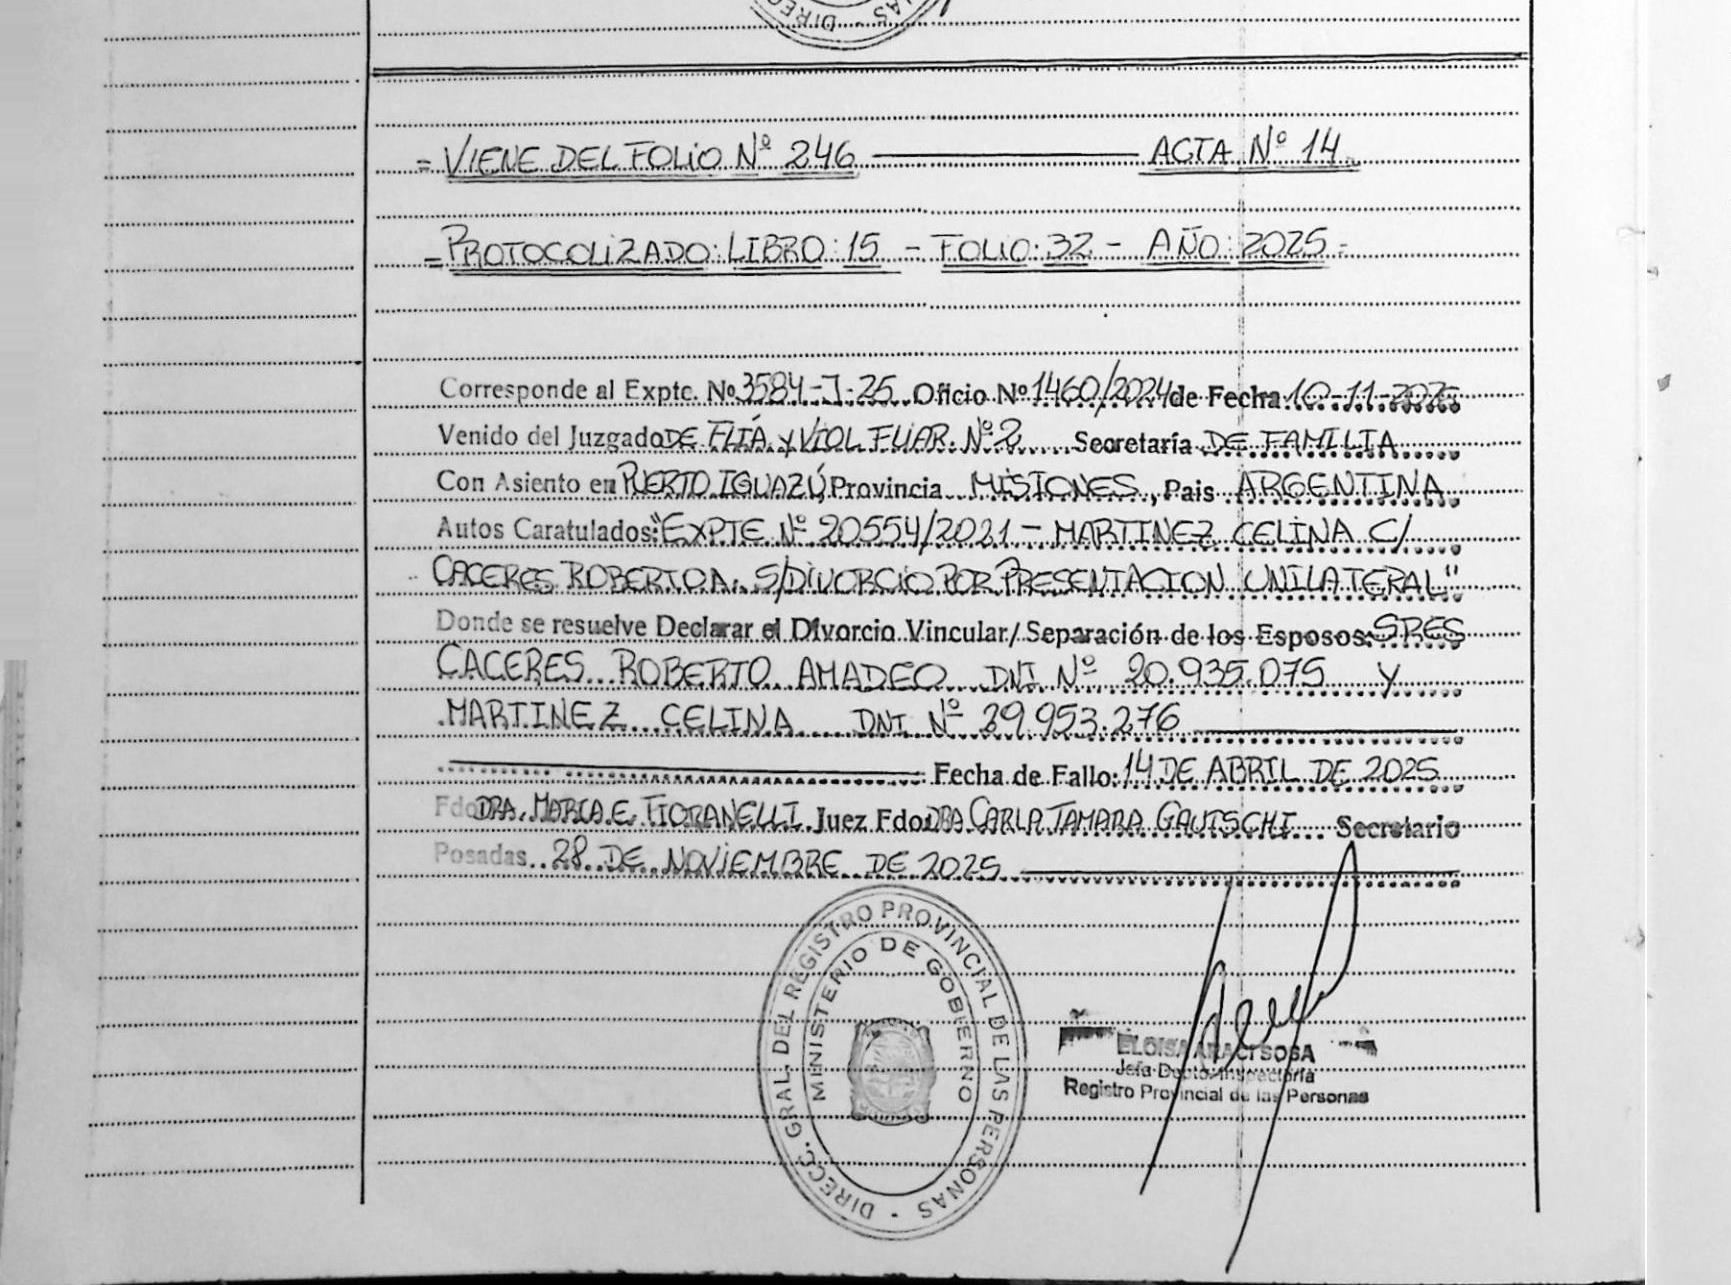 = VIENE DEL FOLIO Nº 246 ———— ACTA Nº 14
= PROTOCOLIZADO: LIBRO: 15 - FOLIO: 32 - AÑO: 2025 =
Corresponde al Expte. Nº 3584-I-25 Oficio Nº 1460/2024 de Fecha 10-11-2025
Venido del Juzgado DE FLIA. y VIOL FLIAR. Nº 2 Secretaría DE FAMILIA
Con Asiento en PUERTO IGUAZÚ, Provincia MISIONES, Pais ARGENTINA
Autos Caratulados: "EXPTE Nº 20554/2021 - MARTINEZ CELINA C/
CACERES ROBERTO A. S/DIVORCIO POR PRESENTACION UNILATERAL"
Donde se resuelve Declarar el Divorcio Vincular/ Separación de los Esposos: SRES
CACERES ROBERTO AMADEO DNI Nº 20.935.075 y
MARTINEZ CELINA DNI Nº 29.953.276
Fecha de Fallo: 14 DE ABRIL DE 2025
Fdo DRA. MARIA E. FIORANELLI Juez Fdo: DRA CARLA TAMARA GAUTSCHI Secretario
Posadas 28 DE NOVIEMBRE DE 2025
DIRECC. GRAL. DEL REGISTRO PROVINCIAL DE LAS PERSONAS
MINISTERIO DE GOBIERNO
ELOISA ARACI SOSA
Jefa Depto. Inspectoría
Registro Provincial de las Personas